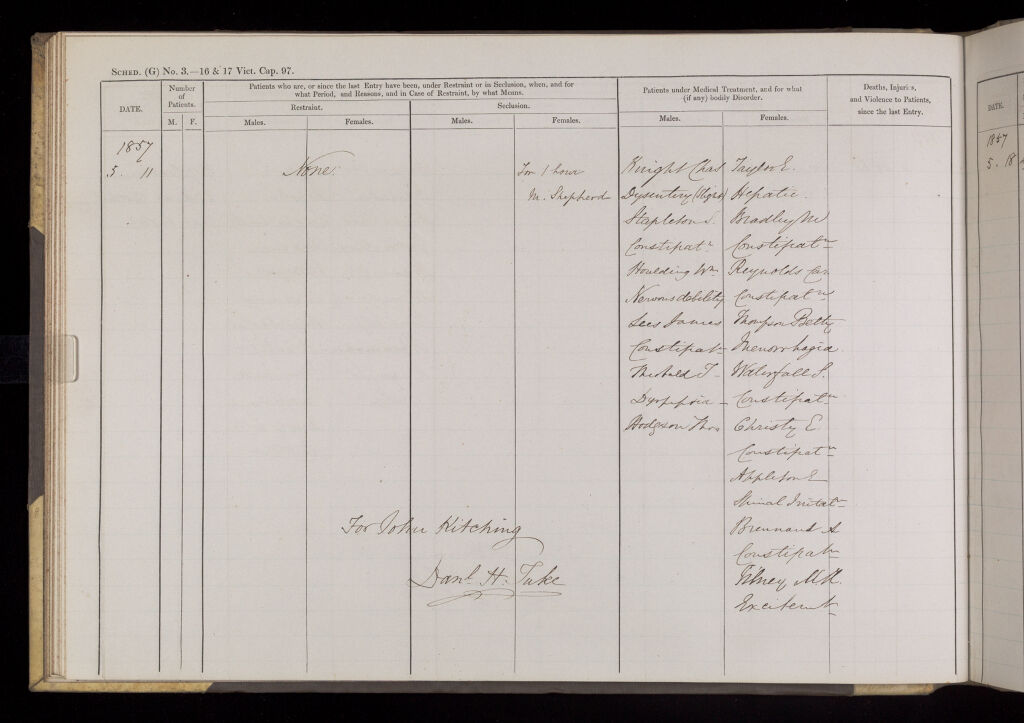 SCHED. (G) No. 3.—16 & 17 Vict. Cap. 97.
DATE.
Number of Patients.
M. F.
Patients who are, or since the last Entry have been, under Restraint or in Seclusion, when, and for
what Period, and Reasons, and in Case of Restraint, by what Means.
Restraint.
Seclusion.
Males. Females. Males. Females.
Patients under Medical Treatment, and for what
(if any) bodily Disorder.
Males. Females.
Deaths, Injuries,
and Violence to Patients,
since the last Entry.
1857
5. 11 None. For 1 hour Knight Chas Taylor E.
M. Shepherd Dysentery Hepatic.
Stapleton S. Bradley M
Constipatn Constipatn
Houlding Wm Reynolds Car
Nervous debility Constipatn
Lees James Thompson Betty
Constipatn Menorrhagia.
T Waterfall S.
Dyspepsia Constipatn
Hodgson Thos Christy E.
Constipatn
Appleton E
Spinal Irritatn
Brennand A
Constipatn
M.H.
Excitemt
For John Kitching
Danl. H. Tuke
DATE.
1857
5. 18